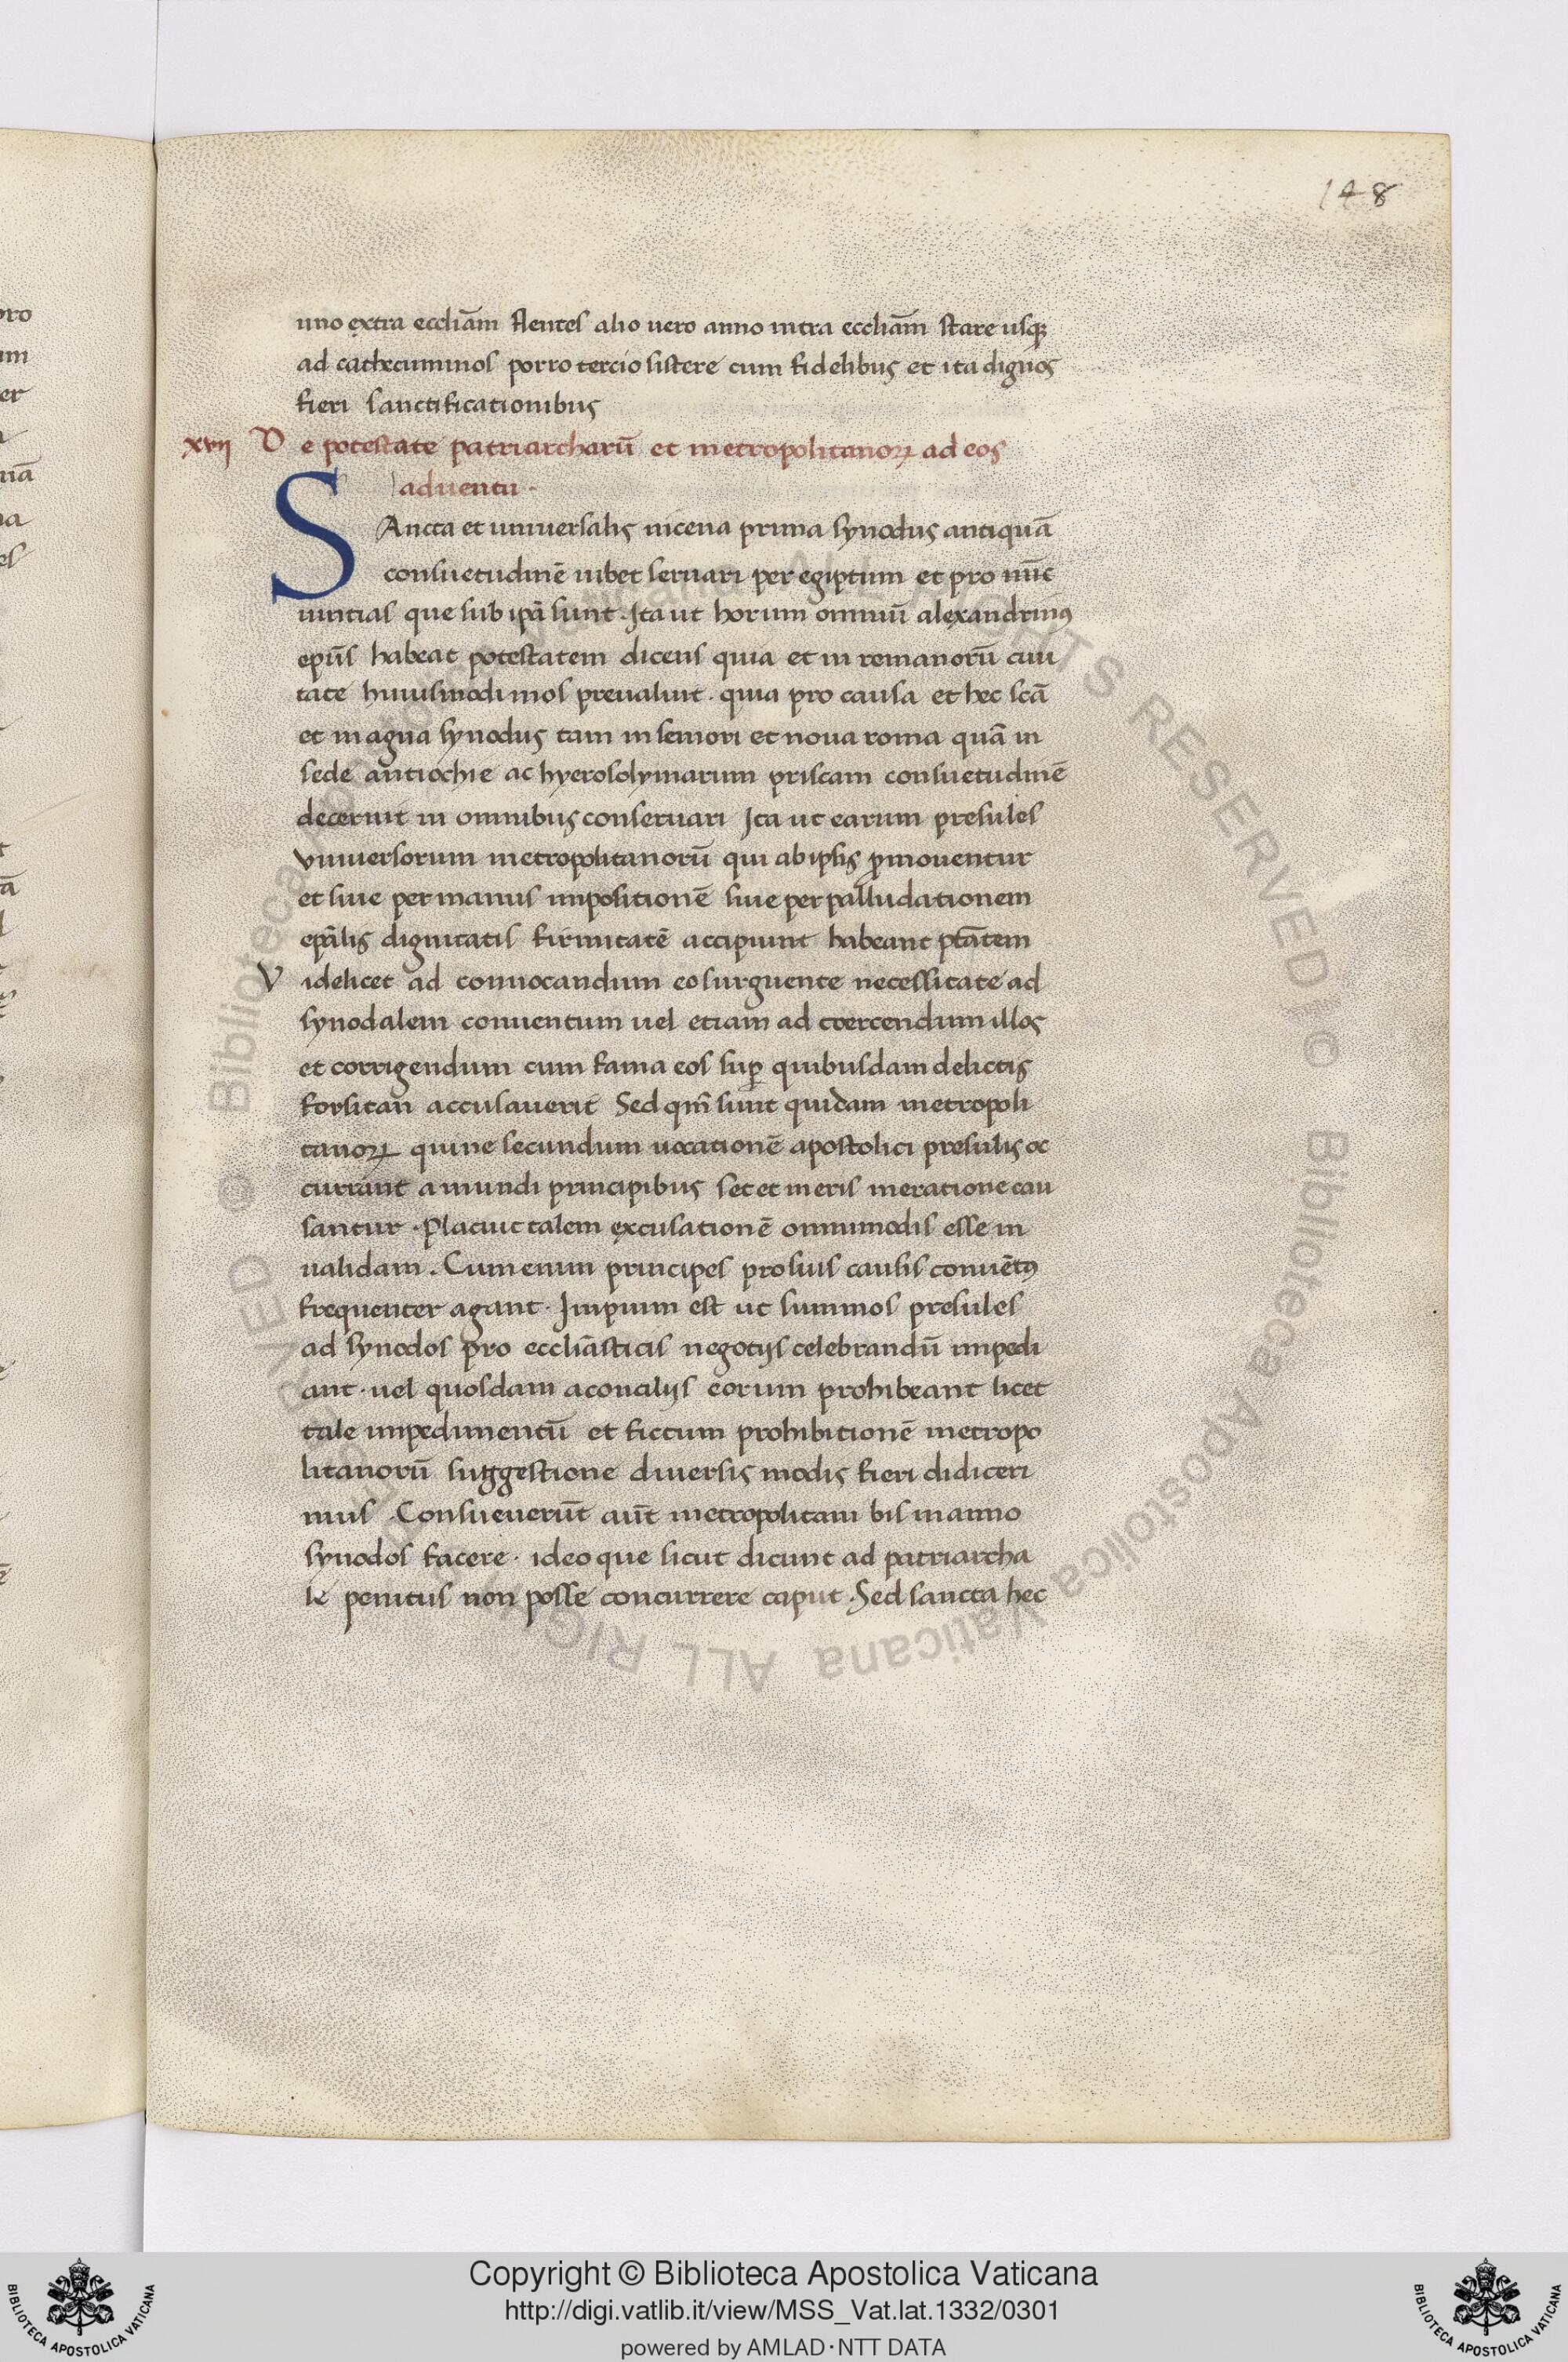 148
uno extra eccliām flentes alio uero anno intra eccliām stare usqꝫ
ad cathecuminos porro tercio sistere cum fidelibus et ita dignos
fieri sanctificationibus
xvii De potestate patriarcharū et metropolitanoꝝ ad eos
aduentu .
SAncta et uniuersalis nicena prima synodus antiquā
consuetudinē iubet seruari per egiptum et pro
uintias que sub ipā sunt . Ita ut horum omniū alexandrinꝰ
epūs habeat potestatem dicens quia et in romanorū ciui
tate huiusmodi mos preualuit . quia pro causa et hec scā
et magna synodus tam in seniori et noua roma quā in
sede antiochie ac hyerosolymarum priscam consuetudinē
decernit in omnibus conseruari Ita ut earum presules
vniuersorum metropolitanorū qui ab ipsis ꝓmouentur
et siue per manus impositionē siue per palludationem
epālis dignitatis firmitatē accipiunt habeant ptātem
Videlicet ad conuocandum eos urguente necessitate ad
synodalem conuentum uel etiam ad coercendum illos
et corrigendum cum fama eos suꝑ quibusdam delictis
forsitan accusauerit Sed qm̄ sunt quidam metropoli
tanoꝝ qui ne secundum uocationē apostolici presulis oc
currant a mundi principibus se et ratione cau
santur . Placuit talem excusationē omnimodis esse in
ualidam . Cum enim principes pro suis causis conuētꝰ
frequenter agant . Impium est ut summos presules
ad synodos pro eccliāsticis negotijs celebrandū impedi
ant . uel quosdam a concilijs eorum prohibeant licet
tale impedimentū et fictum prohibitionē metropo
litanorū suggestione diuersis modis fieri didiceri
mus . Consueuerūt aūt metropolitani bis in anno
synodos facere . ideo que sicut dicunt ad patriarcha
le penitus non posse concurrere caput . Sed sancta hec
Biblioteca Apostolica Vaticana ALL RIGHTS RESERVED © Biblioteca Apostolica Vaticana ALL RIGHTS RESERVED ©
Copyright © Biblioteca Apostolica Vaticana
http://digi.vatlib.it/view/MSS_Vat.lat.1332/0301
powered by AMLAD·NTT DATA
BIBLIOTECA APOSTOLICA VATICANA
BIBLIOTECA APOSTOLICA VATICANA